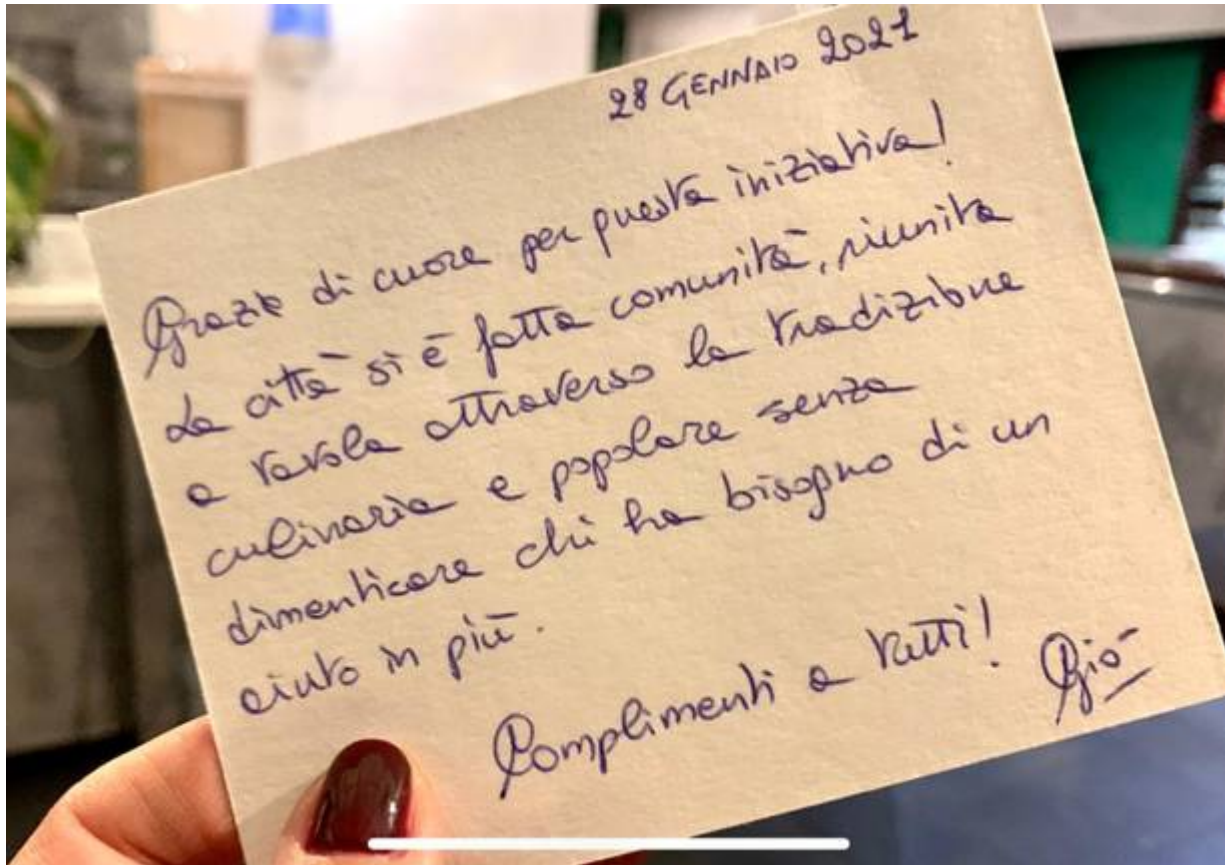 28 GENNAIO 2021
Grazie di cuore per questa iniziativa!
La città si è fatta comunità, riunita
a tavola attraverso la tradizione
culinaria e popolare senza
dimenticare chi ha bisogno di un
aiuto in più.
Complimenti a tutti!
Giò